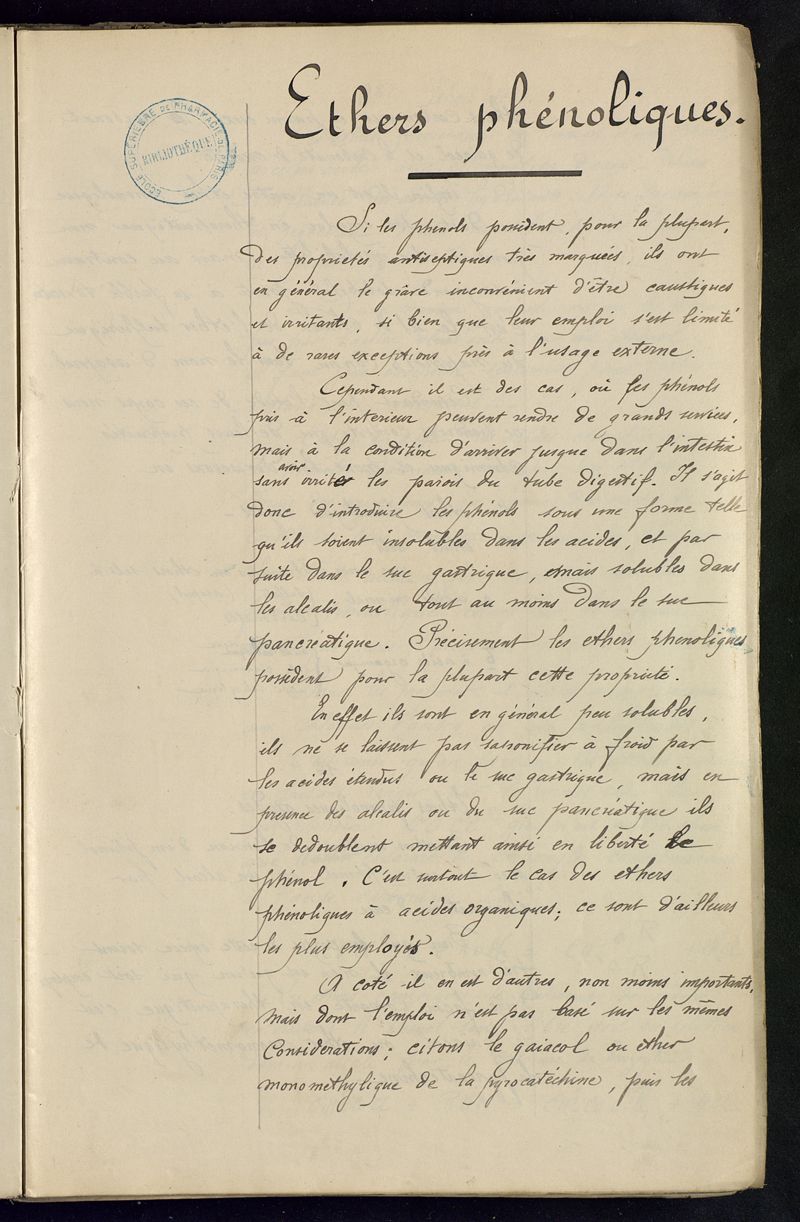 Ethers phénoliques.
ÉCOLE SUPÉRIEURE DE PHARMACIE DE PARIS
BIBLIOTHÈQUE
Si les phenols possèdent, pour la plupart,
des propriétés antiseptiques très marquées, ils ont
en général le grave inconvénient d'être caustiques
et irritants, si bien que leur emploi s'est limité
à de rares exceptions près à l'usage externe.
Cependant il est des cas, où les phénols
pris à l'interieur peuvent rendre de grands services,
mais à la condition d'arriver jusque dans l'intestin
sans avoir irrité les parois du tube digestif. Il s'agit
donc d'introduire les phénols sous une forme telle
qu'ils soient insolubles dans les acides, et par
suite dans le suc gastrique, mais solubles dans
les alcalis, ou tout au moins dans le suc
pancréatique. Précisement les ethers phenoliques
possèdent pour la plupart cette propriété.
En effet ils sont en général peu solubles,
ils ne se laissent pas saponifier à froid par
les acides étendus ou le suc gastrique, mais en
presence des alcalis ou du suc pancréatique ils
se dedoublent mettant ainsi en liberté le
phénol. C'est surtout le cas des ethers
phénoliques à acides organiques; ce sont d'ailleurs
les plus employés.
A coté il en est d'autres, non moins importants,
mais dont l'emploi n'est pas basé sur les mêmes
Considerations; citons le gaiacol ou ether
monomethylique de la pyrocatéchine, puis les